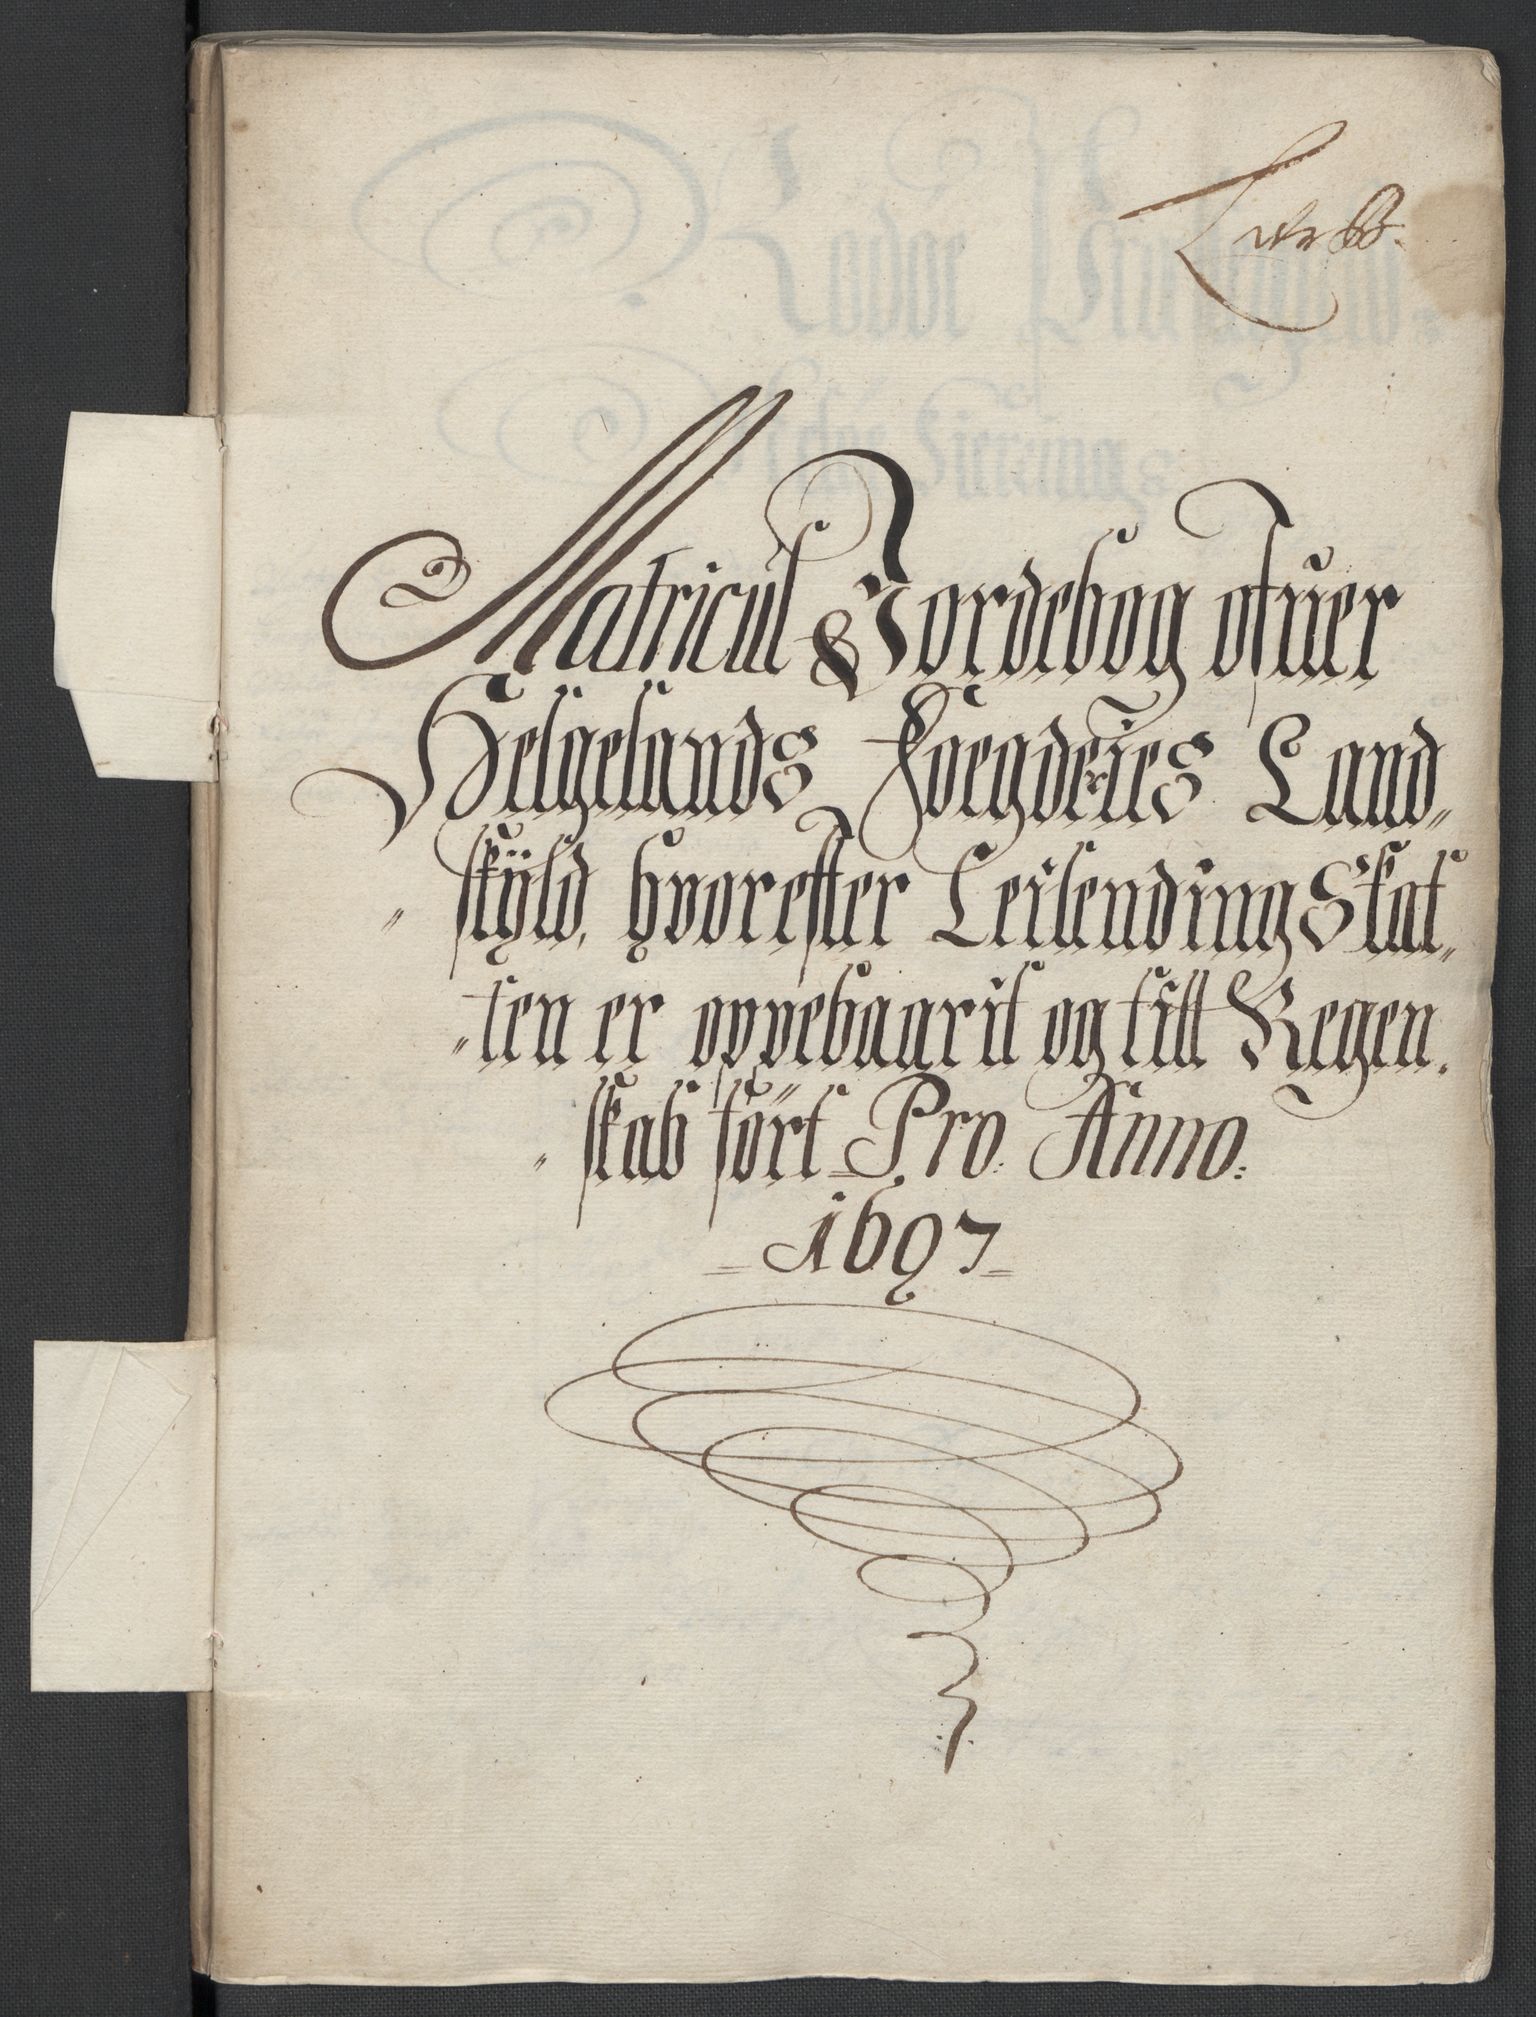 Matricul & Jordebog ofuer
Helgelands Foegderies Land„
„ skÿld, hvorefter Leilending Skat„
„ten er oppebaarit og till Regen„
„ skab fört Pro: Anno:
1697